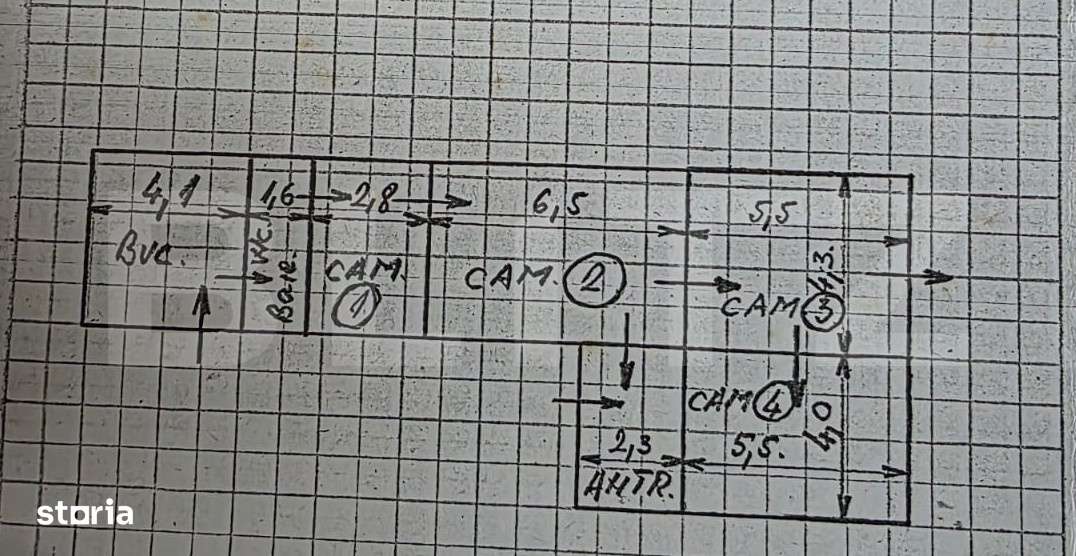 4,1
1,6
2,8
6,5
5,5
Buc.
Wc.
Baie.
CAM.
1
CAM. 2
4,3.
CAM 3
CAM 4
4,0
2,3
5,5.
AHTR.
storia